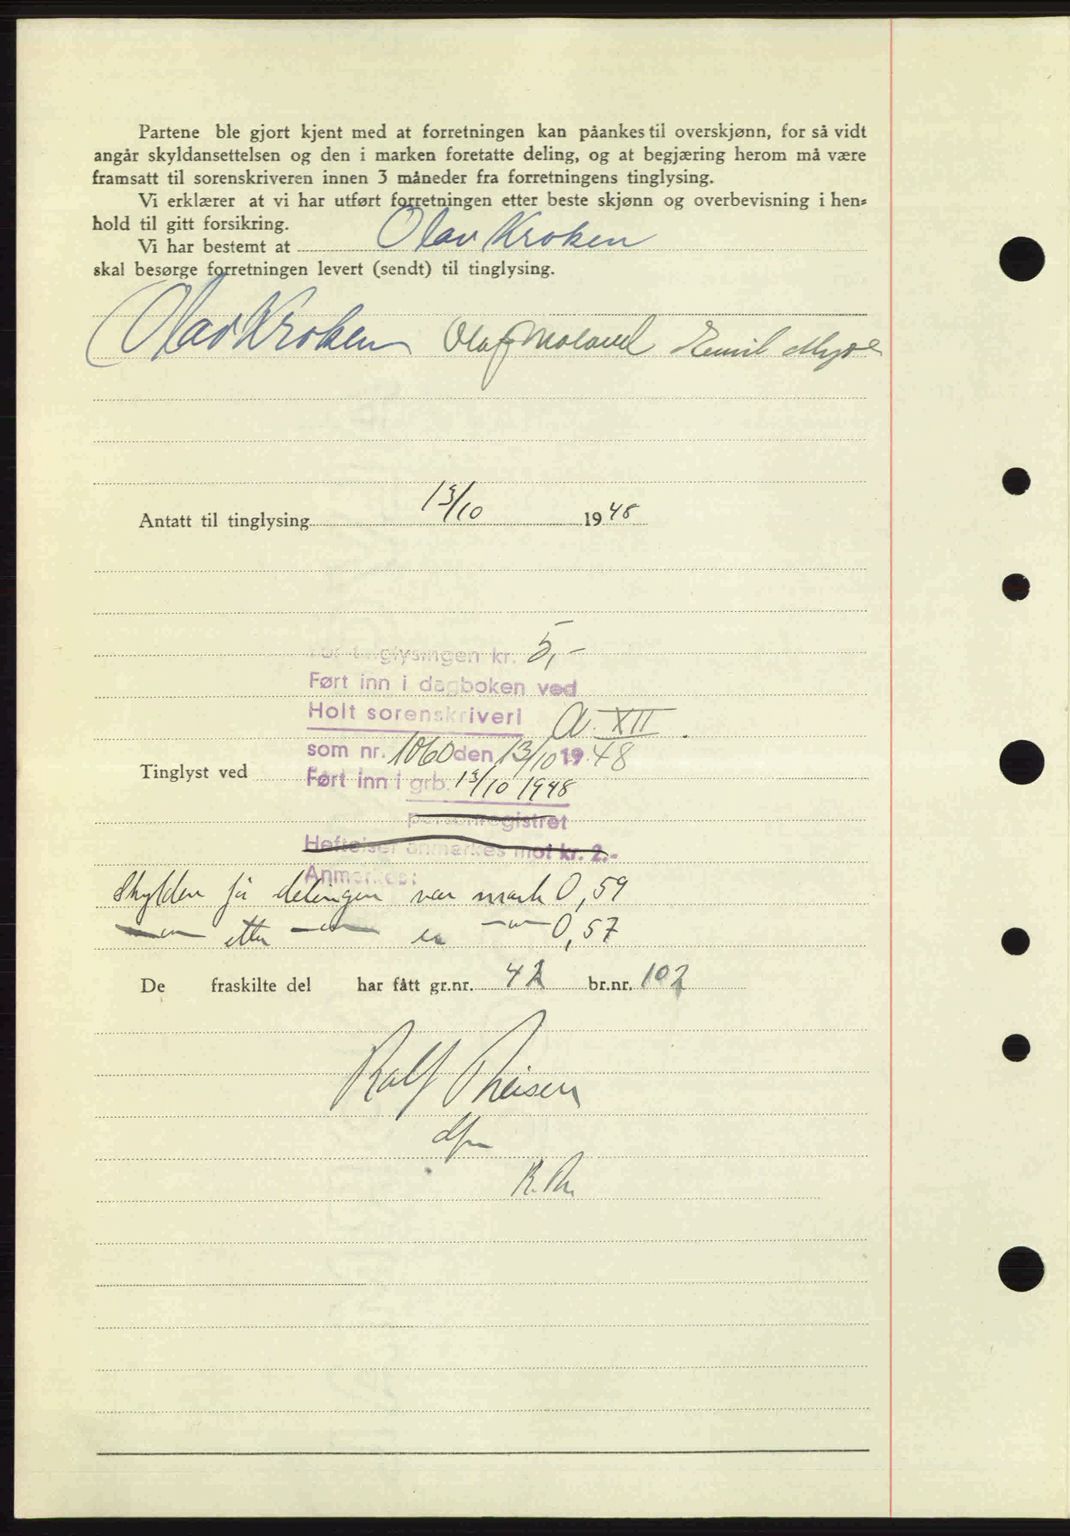 Partene ble gjort kjent med at forretningen kan påankes til overskjønn, for så vidt
angår skyldansettelsen og den i marken foretatte deling, og at begjæring herom må være
framsatt til sorenskriveren innen 3 måneder fra forretningens tinglysing.
Vi erklærer at vi har utført forretningen etter beste skjønn og overbevisning i hen-
hold til gitt forsikring.
Vi har bestemt at Olav Kroken
skal besørge forretningen levert (sendt) til tinglysing.
Olav Kroken Olaf Moland Emil
Antatt til tinglysing 13/10 1948
For tinglysingen kr. 5,-
Ført inn i dagboken ved
Holt sorenskriveri A. XII.
som nr. 1060 den 13/10 1948
Tinglyst ved
Ført inn i grb. 13/10 1948
personregistret
Heftelser anmerkes mot kr. 2.-
Anmerkes:
Skylden før delingen var mark 0,59
—"— etter —"— er —"— 0,57
De fraskilte del har fått gr.nr. 42 br.nr. 102
Ralf Theisen
dfm
R. Th.